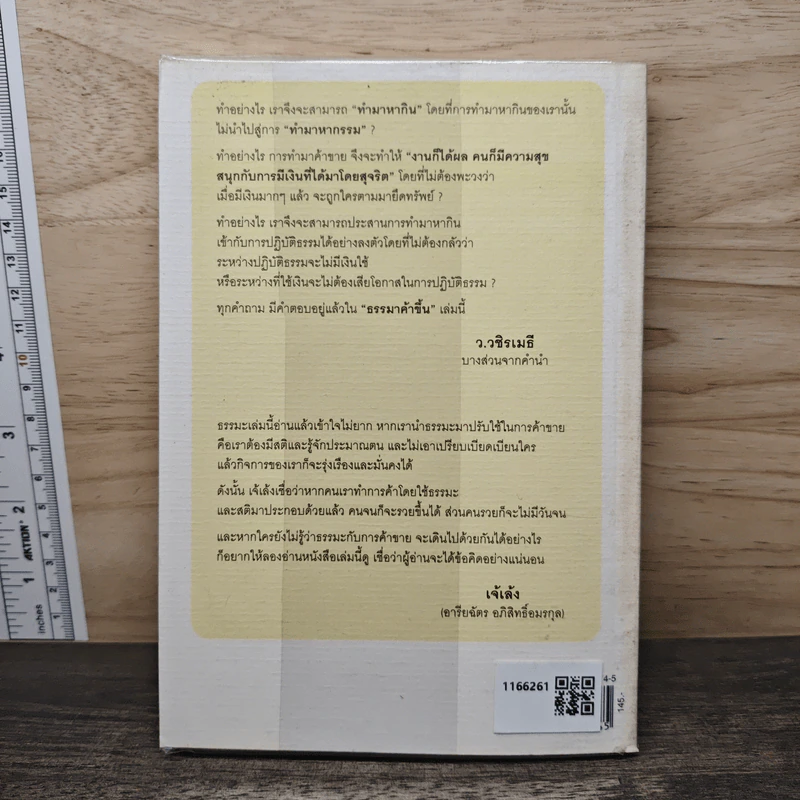 ทำอย่างไร เราจึงจะสามารถ "ทำมาหากิน" โดยที่การทำมาหากินของเรานั้น
ไม่นำไปสู่การ "ทำมาหากรรม" ?
ทำอย่างไร การทำมาค้าขาย จึงจะทำให้ "งานก็ได้ผล คนก็มีความสุข
สนุกกับการมีเงินที่ได้มาโดยสุจริต" โดยที่ไม่ต้องพะวงว่า
เมื่อมีเงินมากๆ แล้ว จะถูกใครตามมายึดทรัพย์ ?
ทำอย่างไร เราจึงจะสามารถประสานการทำมาหากิน
เข้ากับการปฏิบัติธรรมได้อย่างลงตัวโดยที่ไม่ต้องกลัวว่า
ระหว่างปฏิบัติธรรมจะไม่มีเงินใช้
หรือระหว่างที่ใช้เงินจะไม่ต้องเสียโอกาสในการปฏิบัติธรรม ?
ทุกคำถาม มีคำตอบอยู่แล้วใน "ธรรมาค้าขึ้น" เล่มนี้
ว.วชิรเมธี
บางส่วนจากคำนำ
ธรรมะเล่มนี้อ่านแล้วเข้าใจไม่ยาก หากเรานำธรรมะมาปรับใช้ในการค้าขาย
คือเราต้องมีสติและรู้จักประมาณตน และไม่เอาเปรียบเบียดเบียนใคร
แล้วกิจการของเราก็จะรุ่งเรืองและมั่นคงได้
ดังนั้น เจ้เล้งเชื่อว่าหากคนเราทำการค้าโดยใช้ธรรมะ
และสติมาประกอบด้วยแล้ว คนจนก็จะรวยขึ้นได้ ส่วนคนรวยก็จะไม่มีวันจน
และหากใครยังไม่รู้ว่าธรรมะกับการค้าขาย จะเดินไปด้วยกันได้อย่างไร
ก็อยากให้ลองอ่านหนังสือเล่มนี้ดู เชื่อว่าผู้อ่านจะได้ข้อคิดอย่างแน่นอน
เจ้เล้ง
(อารียฉัตร อภิสิทธิ์อมรกุล)
1166261
4-5
145.-
AKTION
inches
1
2
3
4
5
6
7
8
9
10
11
12
13
14
15